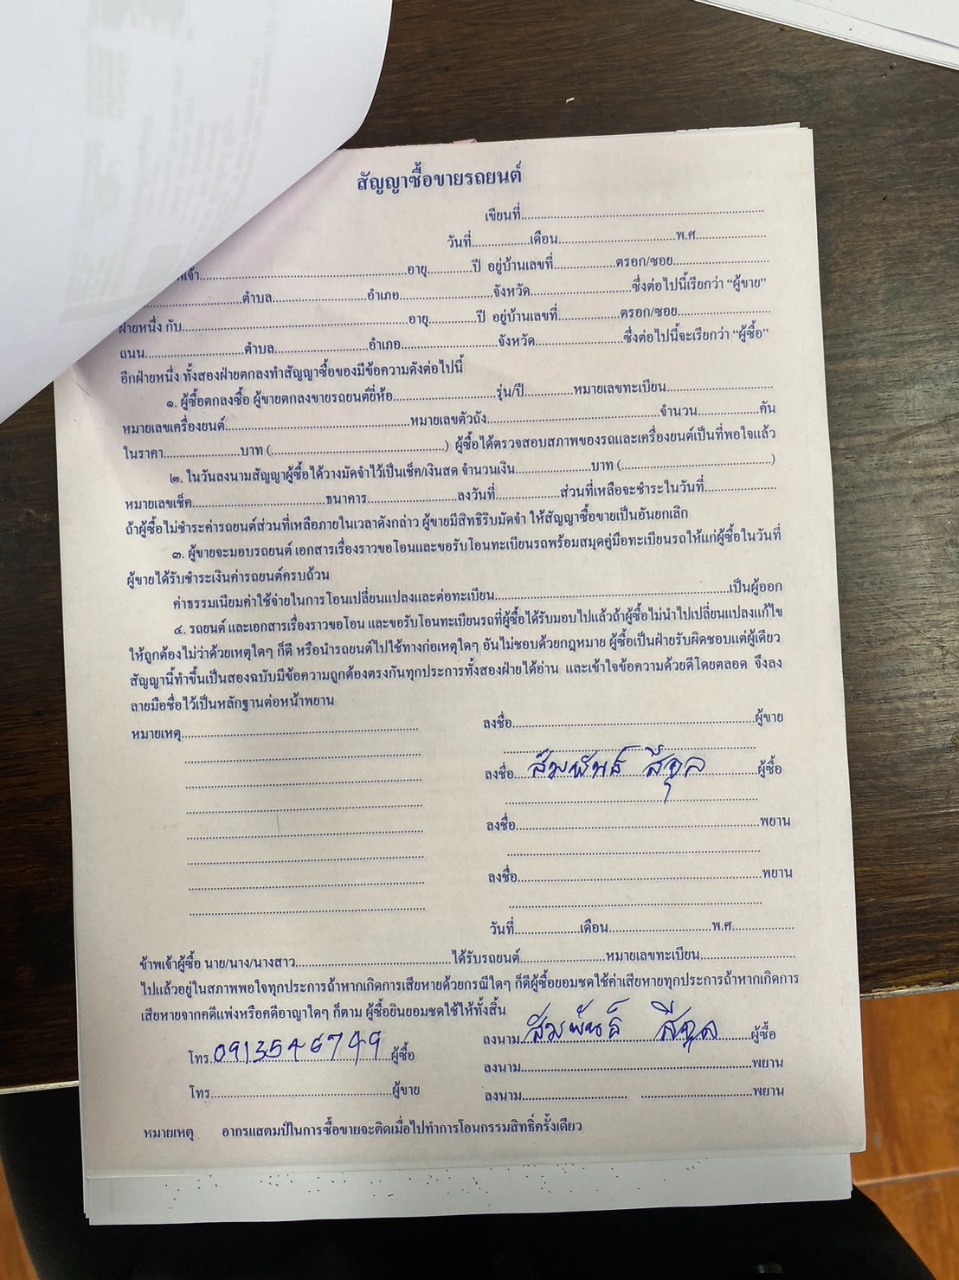 สัญญาซื้อขายรถยนต์
เขียนที่........................................
วันที่...............เดือน..............................พ.ศ..................
เจ้า....................................................อายุ............ปี อยู่บ้านเลขที่................ตรอก/ซอย.........................
ตำบล........................อำเภอ........................จังหวัด..........................ซึ่งต่อไปนี้เรียกว่า “ผู้ขาย”
ฝ่ายหนึ่ง กับ..........................................................อายุ.............ปี อยู่บ้านเลขที่................ตรอก/ซอย.........................
ถนน..........................ตำบล.........................อำเภอ.........................จังหวัด.......................ซึ่งต่อไปนี้จะเรียกว่า “ผู้ซื้อ”
อีกฝ่ายหนึ่ง ทั้งสองฝ่ายตกลงทำสัญญาซื้อของมีข้อความดังต่อไปนี้
๑. ผู้ซื้อตกลงซื้อ ผู้ขายตกลงขายรถยนต์ยี่ห้อ...........................รุ่น/ปี.............หมายเลขทะเบียน...........................
หมายเลขเครื่องยนต์................................................หมายเลขตัวถัง.............................................จำนวน................คัน
ในราคา....................บาท (.............................................) ผู้ซื้อได้ตรวจสอบสภาพของรถและเครื่องยนต์เป็นที่พอใจแล้ว
๒. ในวันลงนามสัญญาผู้ซื้อได้วางมัดจำไว้เป็นเช็ค/เงินสด จำนวนเงิน....................บาท (.......................................)
หมายเลขเช็ค...................................ธนาคาร.......................ลงวันที่.................ส่วนที่เหลือจะชำระในวันที่...................
ถ้าผู้ซื้อไม่ชำระค่ารถยนต์ส่วนที่เหลือภายในเวลาดังกล่าว ผู้ขายมีสิทธิริบมัดจำ ให้สัญญาซื้อขายเป็นอันยกเลิก
๓. ผู้ขายจะมอบรถยนต์ เอกสารเรื่องราวขอโอนและขอรับโอนทะเบียนรถพร้อมสมุดคู่มือทะเบียนรถให้แก่ผู้ซื้อในวันที่
ผู้ขายได้รับชำระเงินค่ารถยนต์ครบถ้วน
ค่าธรรมเนียมค่าใช้จ่ายในการโอนเปลี่ยนแปลงและต่อทะเบียน............................................................เป็นผู้ออก
๔. รถยนต์ และเอกสารเรื่องราวขอโอน และขอรับโอนทะเบียนรถที่ผู้ซื้อได้รับมอบไปแล้วถ้าผู้ซื้อไม่นำไปเปลี่ยนแปลงแก้ไข
ให้ถูกต้องไม่ว่าด้วยเหตุใดๆ ก็ดี หรือนำรถยนต์ไปใช้ทางก่อเหตุใดๆ อันไม่ชอบด้วยกฎหมาย ผู้ซื้อเป็นฝ่ายรับผิดชอบแต่ผู้เดียว
สัญญานี้ทำขึ้นเป็นสองฉบับมีข้อความถูกต้องตรงกันทุกประการทั้งสองฝ่ายได้อ่าน และเข้าใจข้อความด้วยดีโดยตลอด จึงลง
ลายมือชื่อไว้เป็นหลักฐานต่อหน้าพยาน
หมายเหตุ............................................................
ลงชื่อ............................................................ผู้ขาย
ลงชื่อ สัมพันธ์ สีดุล ผู้ซื้อ
ลงชื่อ............................................................พยาน
ลงชื่อ............................................................พยาน
วันที่.................เดือน..........................พ.ศ.................
ข้าพเจ้าผู้ซื้อ นาย/นาง/นางสาว........................................ได้รับรถยนต์......................หมายเลขทะเบียน.........................
ไปแล้วอยู่ในสภาพพอใจทุกประการถ้าหากเกิดการเสียหายด้วยกรณีใดๆ ก็ดีผู้ซื้อยอมชดใช้ค่าเสียหายทุกประการถ้าหากเกิดการ
เสียหายจากคดีแพ่งหรือคดีอาญาใดๆ ก็ตาม ผู้ซื้อยินยอมชดใช้ให้ทั้งสิ้น
โทร. 0913546749 ผู้ซื้อ
ลงนาม สัมพันธ์ สีดุล ผู้ซื้อ
ลงนาม............................................................พยาน
โทร...............................................ผู้ขาย
ลงนาม............................................................พยาน
หมายเหตุ อากรแสตมป์ในการซื้อขายจะติดเมื่อไปทำการโอนกรรมสิทธิ์ครั้งเดียว